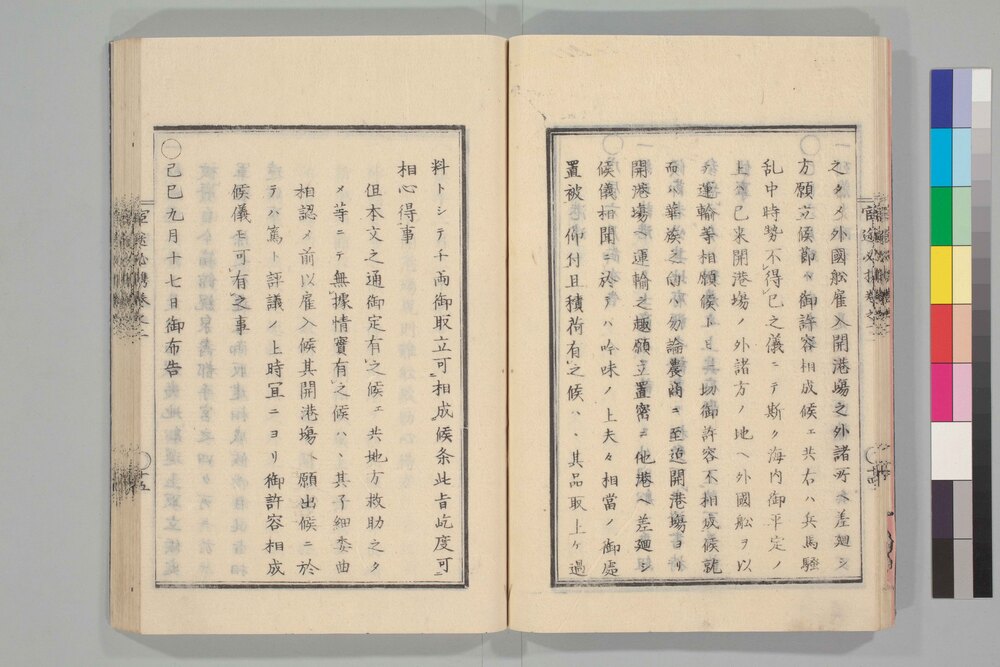 之タメ外國舩雇入開港塲之外諸所ヘ差廻シ
方願立候節々御許容相成候ヱ共右ハ兵馬騒
乱中時㔟不得已之儀ニテ斯ク海内御平定ノ
上ハ已来開港塲ノ外諸方ノ地ヘ外國舩ヲ以
テ運輸等相願候トモ其切御許容不相成候就
而ハ華族之向ハ勿論農商ニ至迄開港塲ヨリ
開港塲ヘ運輸之趣願立置窃ニ他港ヘ差廻シ
候儀相聞ニ於テハ吟味ノ上夫々相當ノ御處
置被 仰付且積荷有之候ハヽ其品取上ケ過
料トシテ千両御取立可相成候条此旨屹度可
相心得事
但本文之通御定有之候ヱ共地方救助之タ
メ等ニテ無據情實有之候ハヽ其子細委曲
相認メ前以雇入候其開港塲ヘ願出候ニ於
テハ篤ト評議ノ上時冝ニヨリ御許容相成
候儀モ可有之事
○一 己巳九月十七日御布告